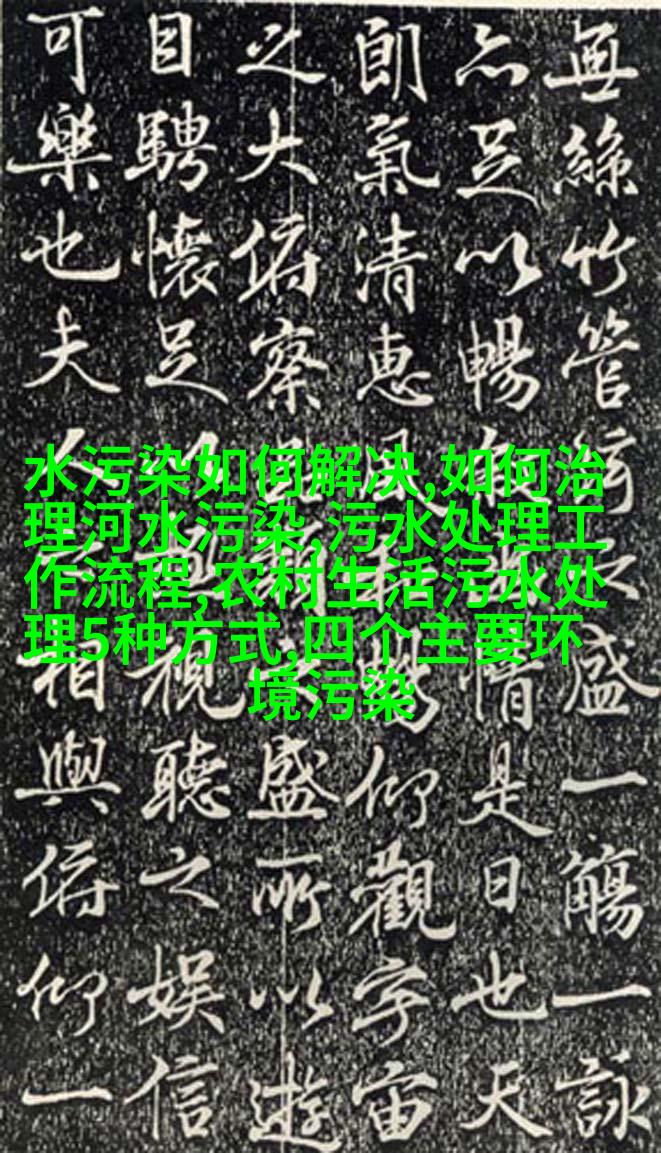 無絲竹管絃之盛一觴一詠
亦足以暢叙幽情是日也天
朗氣清惠風和暢仰觀宇宙
之大俯察品類之盛所以遊
目騁懷足以極視聽之娛信
可樂也夫人之相與俯仰一
水污染如何解决,如何治
理河水污染,污水处理工
作流程,农村生活污水处
理5种方式,四个主要环
境污染